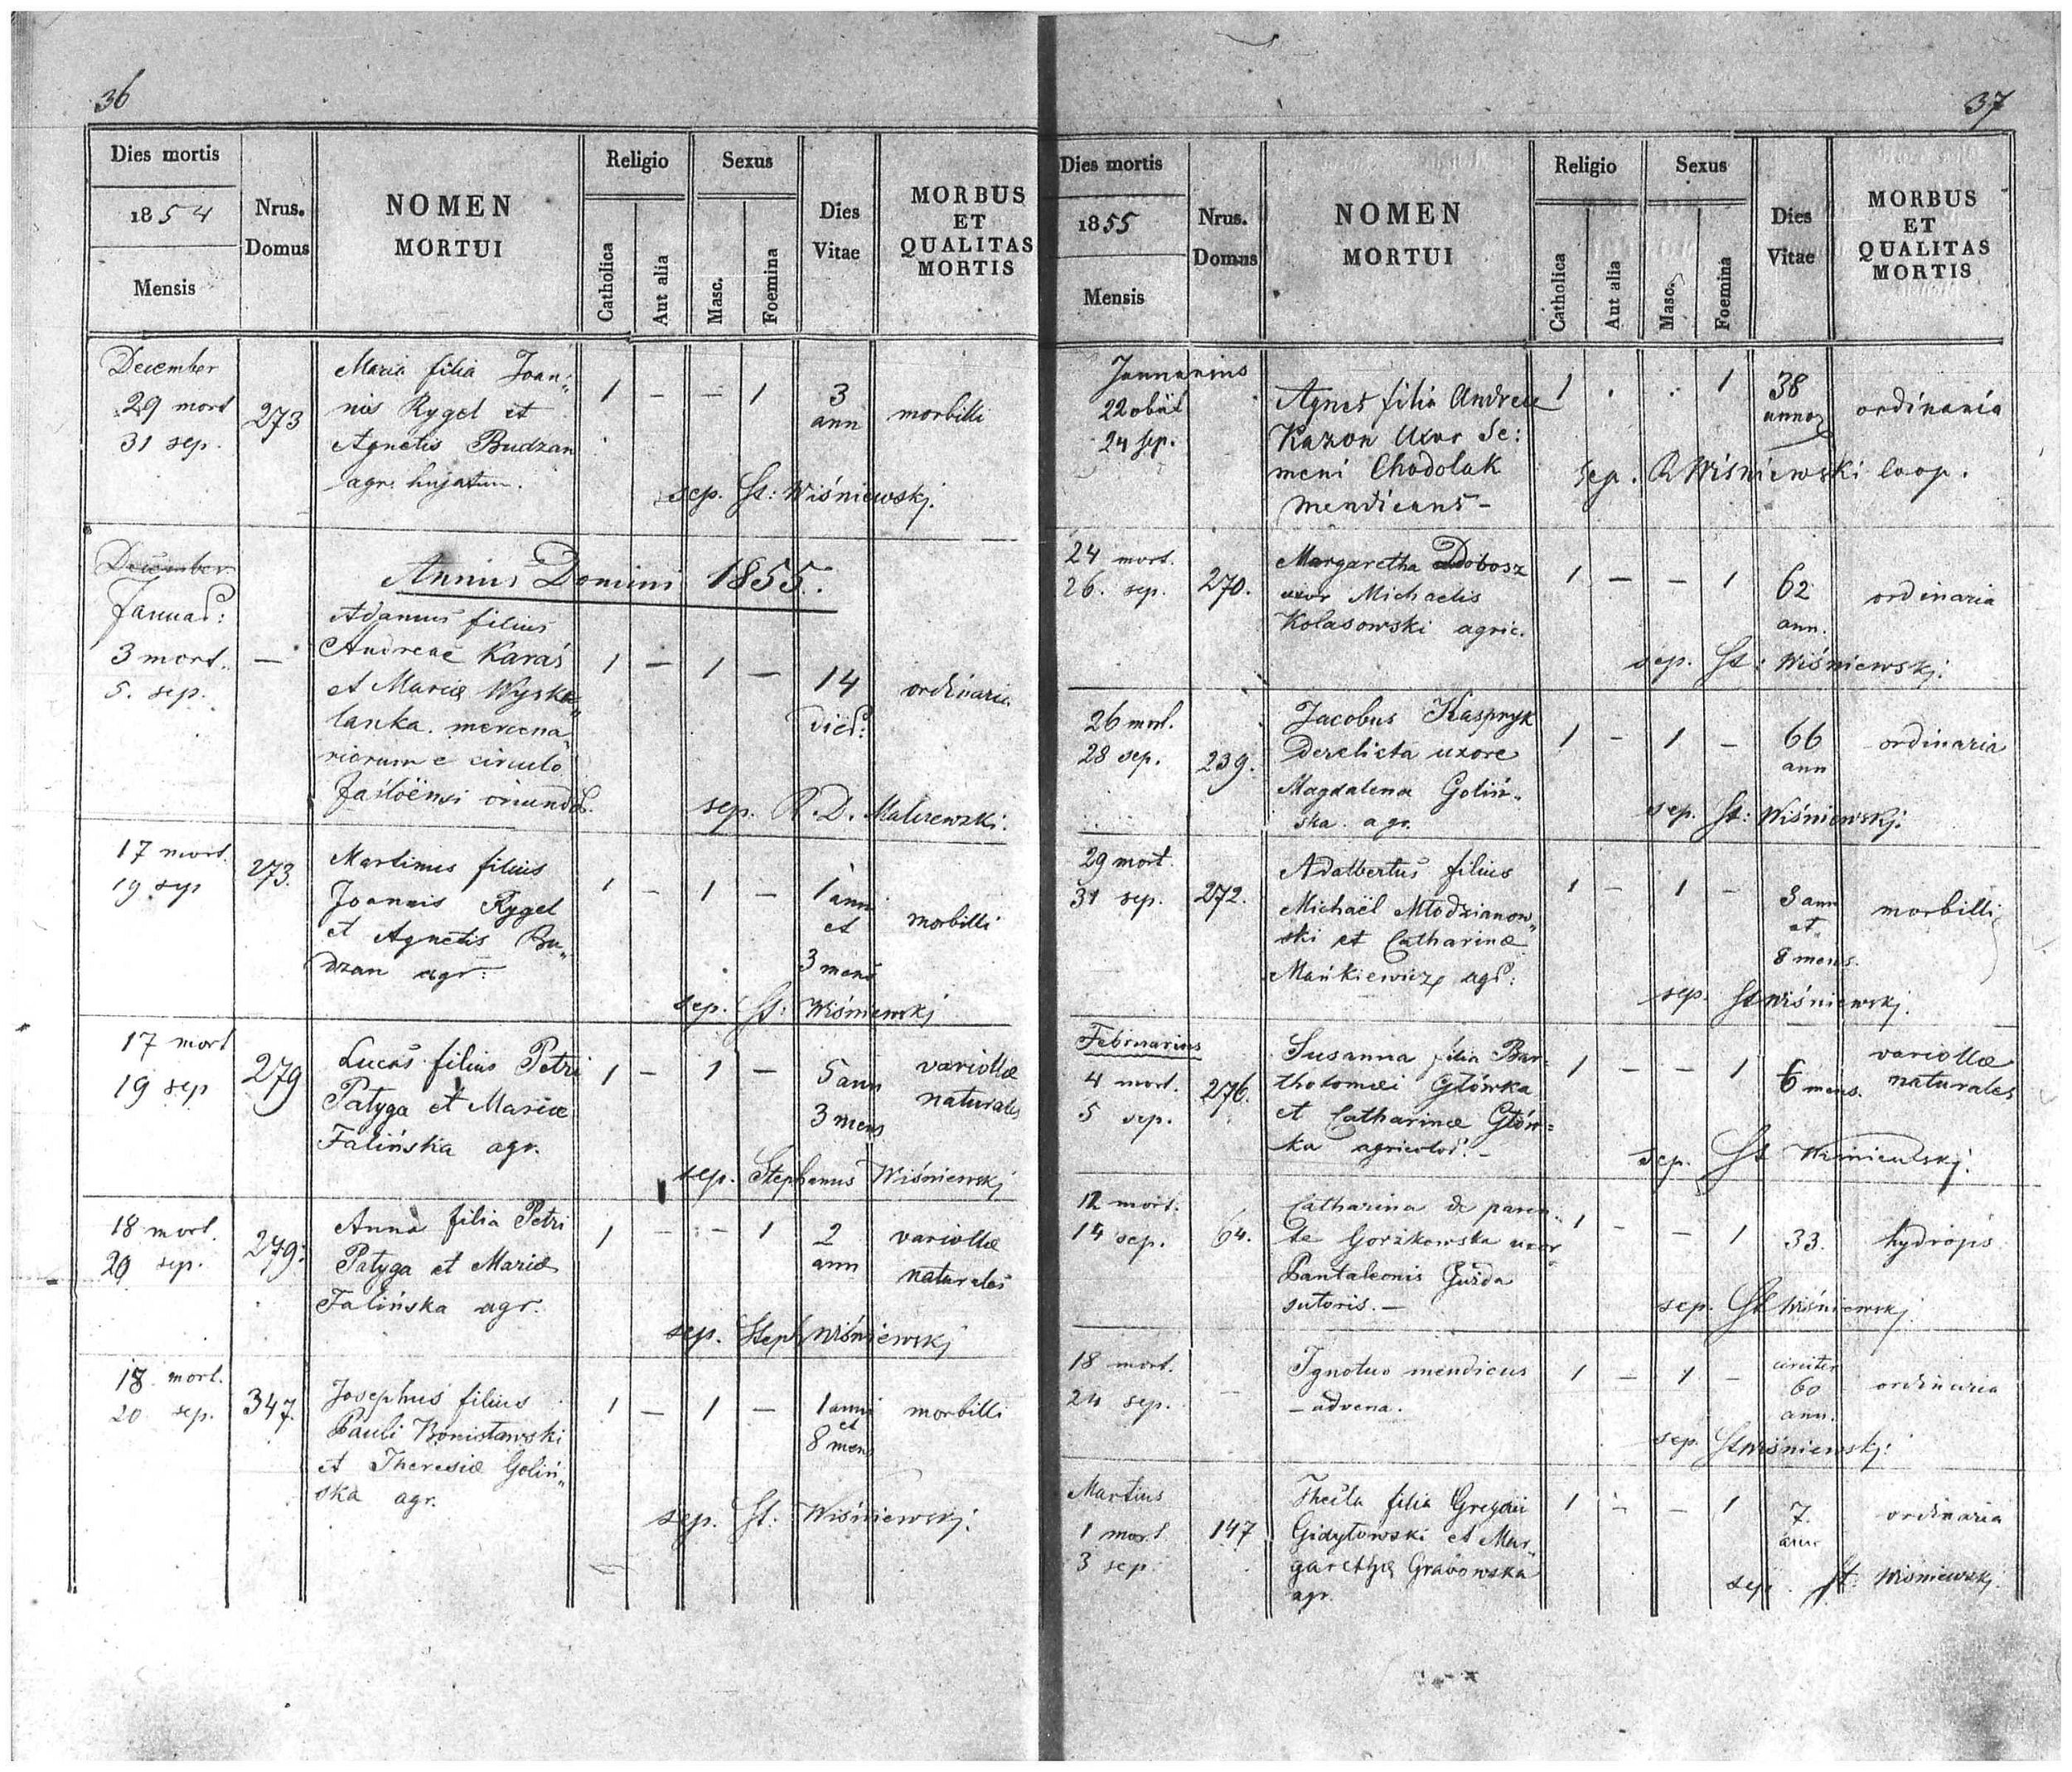 36
Dies mortis
1854
Mensis
Nrus. Domus
NOMEN
MORTUI
Religio
Catholica
Aut alia
Sexus
Masc.
Foemina
Dies
Vitae
MORBUS
ET
QUALITAS
MORTIS
December
29 mort
31 sep.
273
Maria filia Joan„
nis Rygel et
Agnetis Budzan
agr. hujatum.
1 — — 1
3
ann
morbilli
sep. St: Wiśniewskj.
December
Annus Domini 1855.
Januar:
3 mort.
5. sep.
—
Adamus filius
Andreae Karaś
et Mariæ Wyska„
lanka. mercena„
riorum e circulo
Jasłöensi oriund.
1 — 1 —
14
dier:
ordinaria
sep. R. D. Malirewski.
17 mort.
19 sep
273.
Martinus filius
Joannis Rygel
et Agnetis Bu„
dzan agr:
1 — 1 —
1 ann
et
3 mens
morbilli
sep. St: Wiśniewskj
17 mort
19 sep
279
Lucas filius Petri
Patyga et Mariæ
Falińska agr.
1 — 1 —
5 ann
3 mens
variollæ
naturales
sep. Stephanus Wiśniewskj
18 mort.
20 sep.
279.
Anna filia Petri
Patyga et Mariæ
Falińska agr.
1 — — 1
2
ann
variollæ
naturales
sep. Steph Wiśniewskj
18 mort.
20 sep.
347.
Josephus filius
Pauli Bonisławski
et Theresiæ Goliń„
ska agr.
1 — 1 —
1 ann
et
8 mens
morbilli
sep. St: Wiśniewskj.
37
Dies mortis
1855
Mensis
Nrus. Domus
NOMEN
MORTUI
Religio
Catholica
Aut alia
Sexus
Masc.
Foemina
Dies
Vitae
MORBUS
ET
QUALITAS
MORTIS
Januarius
22 obiit
24 sep.
Agnes filia Andreæ
Kazon Uxor Se:
meni Chodolak
mendicans –
1 . . 1
38
annor
ordinaria
sep. R Wiśniewski Coop.
24 mort.
26. sep.
270.
Margaretha Dobosz
uxor Michaelis
Kolasowski agric.
1 — — 1
62
ann.
ordinaria
sep. St: Wiśniewskj.
26 mort.
28 sep.
239.
Jacobus Kaspryk
derelicta uxore
Magdalena Goliń„
ska agr.
1 — 1 —
66
ann
ordinaria
sep. St: Wiśniewskj.
29 mort.
31 sep.
272.
Adalbertus filius
Michaël Młodzianow„
ski et Catharinæ
Mańkiewicz agr:
1 — 1 —
3 ann
et
8 mens.
morbilli
sep. St Wiśniewskj.
Februarius
4 mort.
5 sep.
276.
Susanna filia Bar=
tholomæi Główka
et Catharinæ Głów=
ka agricolor. –
1 — — 1
6 mens.
variollæ
naturales
sep. St Wiśniewskj.
12 mort.
14 sep.
64.
Catharina de paren„
te Gorzkowska uxor
Pantaleonis Guzda
sutoris. —
1 — — 1
33.
hydrops
sep. St Wiśniewskj
18 mort.
24 sep.
—
Ignotus mendicus
— advena.
1 — 1 —
circiter
60
ann.
ordinaria
sep. St Wiśniewskj:
Martius
1 mort.
3 sep.
147
Thecla filia Gregorii
Gidytowski et Mar„
garethæ Grabowska
agr.
1 — — 1
7.
ann
ordinaria
sep. St: Wiśniewskj.